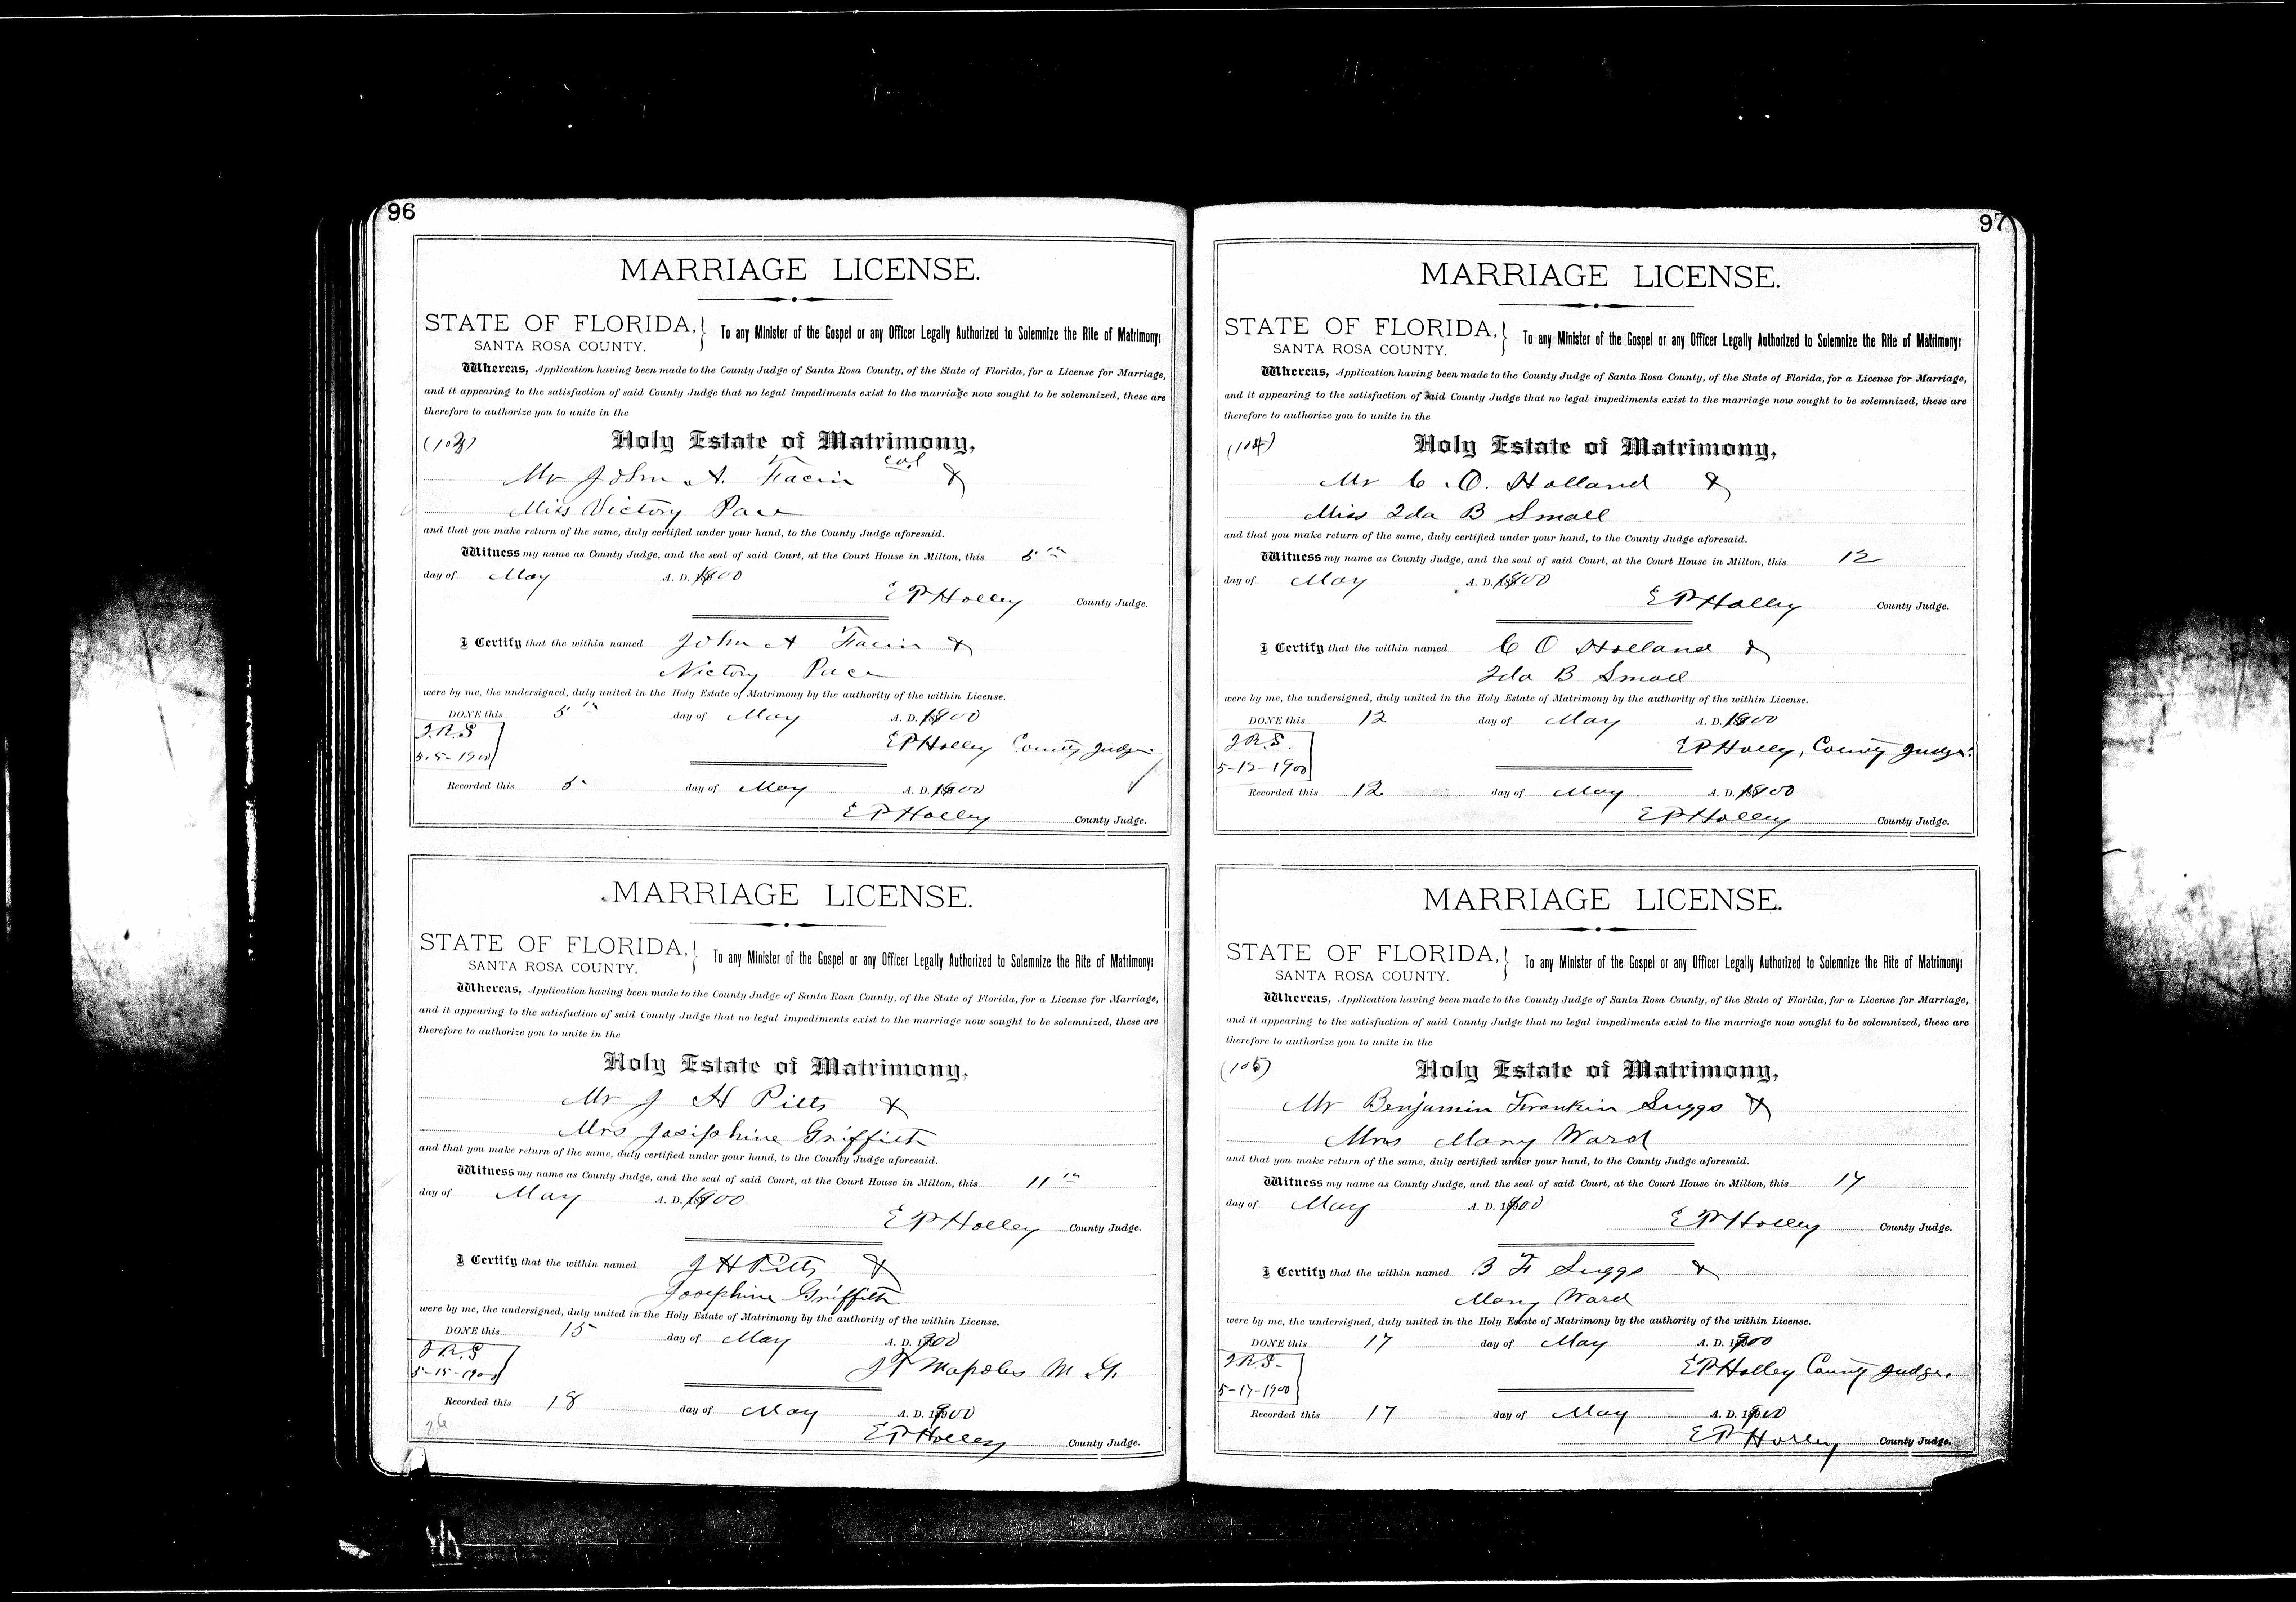 96
MARRIAGE LICENSE.
STATE OF FLORIDA,
SANTA ROSA COUNTY.
To any Minister of the Gospel or any Officer Legally Authorized to Solemnize the Rite of Matrimony:
Whereas, Application having been made to the County Judge of Santa Rosa County, of the State of Florida, for a License for Marriage,
and it appearing to the satisfaction of said County Judge that no legal impediments exist to the marriage now sought to be solemnized, these are
therefore to authorize you to unite in the
Holy Estate of Matrimony,
Mr John A. col &
Miss Victory Pace
and that you make return of the same, duly certified under your hand, to the County Judge aforesaid.
Witness my name as County Judge, and the seal of said Court, at the Court House in Milton, this 5th
day of May A. D. 1900
E P Holley County Judge.
I Certify that the within named John A &
Victory Pace
were by me, the undersigned, duly united in the Holy Estate of Matrimony by the authority of the within License.
DONE this 5th day of May A. D. 1900
J.R.S
5-5-1900
E P Holley County Judge.
Recorded this 5 day of May A. D. 1900
E P Holley County Judge.
MARRIAGE LICENSE.
STATE OF FLORIDA,
SANTA ROSA COUNTY.
To any Minister of the Gospel or any Officer Legally Authorized to Solemnize the Rite of Matrimony:
Whereas, Application having been made to the County Judge of Santa Rosa County, of the State of Florida, for a License for Marriage,
and it appearing to the satisfaction of said County Judge that no legal impediments exist to the marriage now sought to be solemnized, these are
therefore to authorize you to unite in the
Holy Estate of Matrimony,
Mr J H Pitts &
Mrs Josiphine Griffith
and that you make return of the same, duly certified under your hand, to the County Judge aforesaid.
Witness my name as County Judge, and the seal of said Court, at the Court House in Milton, this 11th
day of May A. D. 1900
E P Holley County Judge.
I Certify that the within named J H Pitts &
Josephine Griffith
were by me, the undersigned, duly united in the Holy Estate of Matrimony by the authority of the within License.
DONE this 15 day of May A. D. 1900
J.R.S
5-15-1900
Mapoles M. G.
Recorded this 18 day of May A. D. 1900
E P Holley County Judge.
97
MARRIAGE LICENSE.
STATE OF FLORIDA,
SANTA ROSA COUNTY.
To any Minister of the Gospel or any Officer Legally Authorized to Solemnize the Rite of Matrimony:
Whereas, Application having been made to the County Judge of Santa Rosa County, of the State of Florida, for a License for Marriage,
and it appearing to the satisfaction of said County Judge that no legal impediments exist to the marriage now sought to be solemnized, these are
therefore to authorize you to unite in the
(104) Holy Estate of Matrimony,
Mr C. O. Holland &
Miss Ida B Small
and that you make return of the same, duly certified under your hand, to the County Judge aforesaid.
Witness my name as County Judge, and the seal of said Court, at the Court House in Milton, this 12
day of May A. D. 1900
E P Holley County Judge.
I Certify that the within named C O Holland &
Ida B Small
were by me, the undersigned, duly united in the Holy Estate of Matrimony by the authority of the within License.
DONE this 12 day of May A. D. 1900
J.R.S.
5-12-1900
E P Holley, County Judge.
Recorded this 12 day of May A. D. 1900
E P Holley County Judge.
MARRIAGE LICENSE.
STATE OF FLORIDA,
SANTA ROSA COUNTY.
To any Minister of the Gospel or any Officer Legally Authorized to Solemnize the Rite of Matrimony:
Whereas, Application having been made to the County Judge of Santa Rosa County, of the State of Florida, for a License for Marriage,
and it appearing to the satisfaction of said County Judge that no legal impediments exist to the marriage now sought to be solemnized, these are
therefore to authorize you to unite in the
(105) Holy Estate of Matrimony,
Mr Benjamin Frankin Suggs &
Mrs Mary Ward
and that you make return of the same, duly certified under your hand, to the County Judge aforesaid.
Witness my name as County Judge, and the seal of said Court, at the Court House in Milton, this 17
day of May A. D. 1900
E P Holley County Judge.
I Certify that the within named B F Suggs &
Mary Ward
were by me, the undersigned, duly united in the Holy Estate of Matrimony by the authority of the within License.
DONE this 17 day of May A. D. 1900
J.R.S.
5-17-1900
E P Holley County Judge.
Recorded this 17 day of May A. D. 1900
E P Holley County Judge.